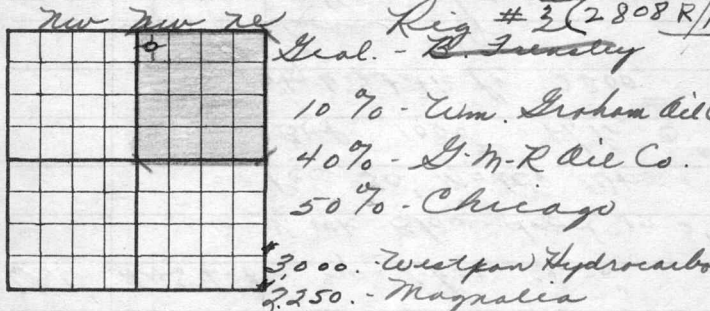 nw nw ne
Rig #3 (2808 R/
Geol. -
10% - Wm. Graham Oil
40% - G-M-R Oil Co.
50% - Chicago
$3,000. - Westpan Hydrocarbo
$2,250. - Magnolia